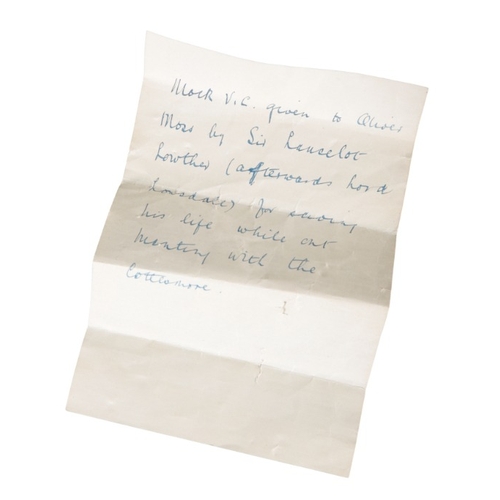 Mock V.C. given to Oliver
Moss by Sir Lancelot
Lowther (afterwards Lord
Lonsdale) for saving
his life while out
Hunting with the
Cottesmore.